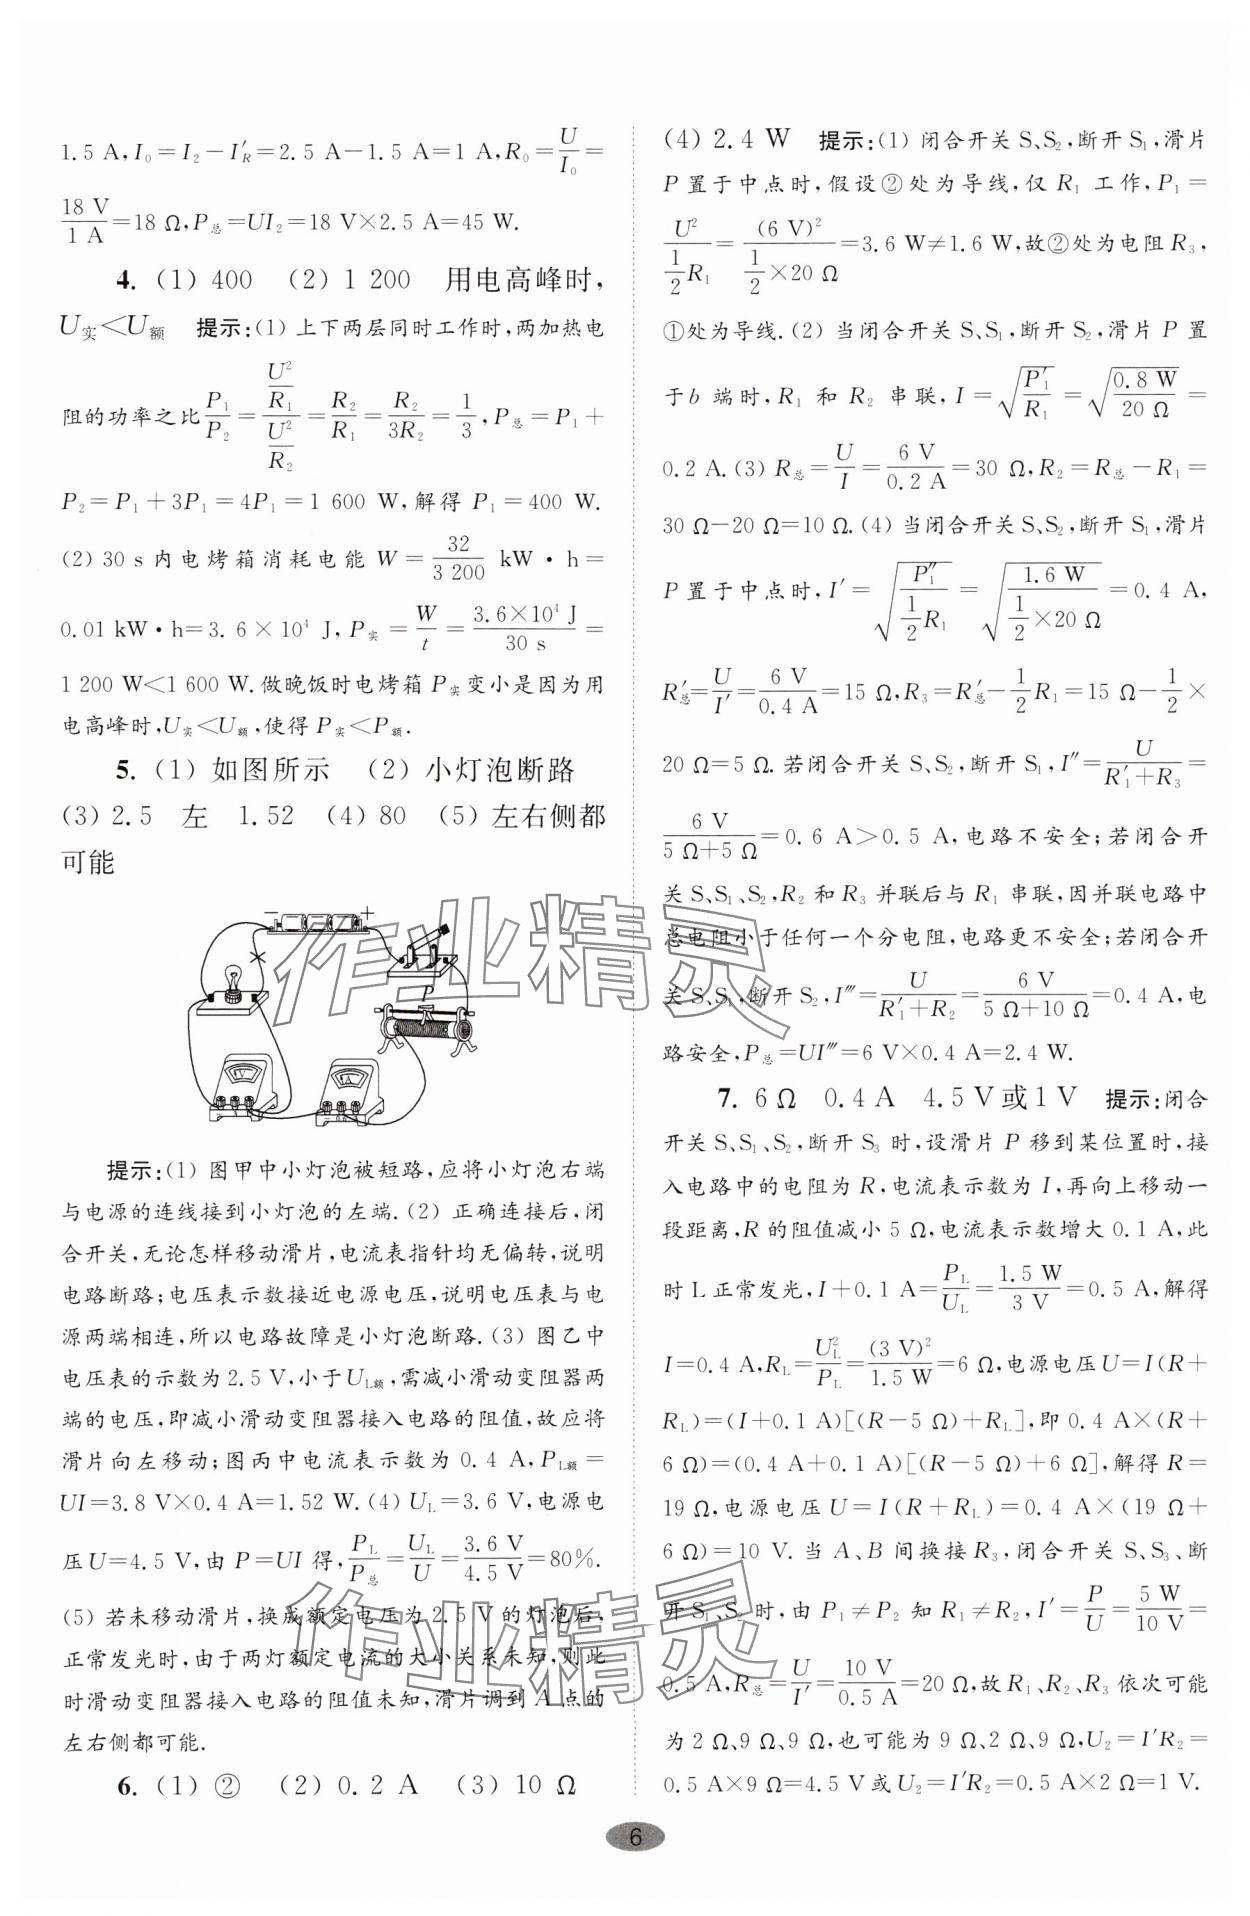 1.5 A,I₀=I₂−I′_R=2.5 A−1.5 A=1 A,R₀=U/I₀=
18 V/1 A=18 Ω,P总=UI₂=18 V×2.5 A=45 W.
4. (1) 400 (2) 1 200 用电高峰时,
U实<U额 提示:(1) 上下两层同时工作时,两加热电
阻的功率之比P₁/P₂=(U²/R₁)/(U²/R₂)=R₂/R₁=R₂/3R₂=1/3,P总=P₁+
P₂=P₁+3P₁=4P₁=1 600 W,解得 P₁=400 W.
(2) 30 s内电烤箱消耗电能 W=32/3 200 kW·h=
0.01 kW·h=3.6×10⁴ J,P实=W/t=3.6×10⁴ J/30 s=
1 200 W<1 600 W.做晚饭时电烤箱 P实变小是因为用
电高峰时,U实<U额,使得 P实<P额.
5. (1) 如图所示 (2) 小灯泡断路
(3) 2.5 左 1.52 (4) 80 (5) 左右侧都
可能
− +
P
V A
提示:(1) 图甲中小灯泡被短路,应将小灯泡右端
与电源的连线接到小灯泡的左端.(2) 正确连接后,闭
合开关,无论怎样移动滑片,电流表指针均无偏转,说明
电路断路;电压表示数接近电源电压,说明电压表与电
源两端相连,所以电路故障是小灯泡断路.(3) 图乙中
电压表的示数为2.5 V,小于U_L额,需减小滑动变阻器两
端的电压,即减小滑动变阻器接入电路的阻值,故应将
滑片向左移动;图丙中电流表示数为 0.4 A,P_L额=
UI=3.8 V×0.4 A=1.52 W.(4) U_L=3.6 V,电源电
压U=4.5 V,由 P=UI 得,P_L/P总=U_L/U=3.6 V/4.5 V=80%.
(5) 若未移动滑片,换成额定电压为 2.5 V 的灯泡后,
正常发光时,由于两灯额定电流的大小关系未知,则此
时滑动变阻器接入电路的阻值未知,滑片调到 A 点的
左右侧都可能.
6. (1) ② (2) 0.2 A (3) 10 Ω
(4) 2.4 W 提示:(1) 闭合开关 S、S₂,断开S₁,滑片
P 置于中点时,假设②处为导线,仅 R₁ 工作,P₁=
U²/(1/2 R₁)=(6 V)²/(1/2×20 Ω)=3.6 W≠1.6 W,故②处为电阻 R₃,
①处为导线.(2) 当闭合开关 S、S₁,断开S₂,滑片 P 置
于b 端时,R₁ 和 R₂ 串联,I=√(P′₁/R₁)=√(0.8 W/20 Ω)=
0.2 A.(3) R总=U/I=6 V/0.2 A=30 Ω,R₂=R总−R₁=
30 Ω−20 Ω=10 Ω.(4) 当闭合开关 S、S₂,断开S₁,滑片
P 置于中点时,I′=√(P″₁/(1/2 R₁))=√(1.6 W/(1/2×20 Ω))=0.4 A,
R′总=U/I′=6 V/0.4 A=15 Ω,R₃=R′总−1/2 R₁=15 Ω−1/2×
20 Ω=5 Ω.若闭合开关 S、S₂,断开 S₁,I″=U/(R′₁+R₃)=
6 V/(5 Ω+5 Ω)=0.6 A>0.5 A,电路不安全;若闭合开
关 S、S₁、S₂,R₂ 和 R₃ 并联后与 R₁ 串联,因并联电路中
总电阻小于任何一个分电阻,电路更不安全;若闭合开
关 S、S₁,断开 S₂,I‴=U/(R′₁+R₂)=6 V/(5 Ω+10 Ω)=0.4 A,电
路安全,P总=UI‴=6 V×0.4 A=2.4 W.
7. 6 Ω 0.4 A 4.5 V或1 V 提示:闭合
开关 S、S₁、S₂,断开S₃ 时,设滑片 P 移到某位置时,接
入电路中的电阻为 R,电流表示数为 I,再向上移动一
段距离,R 的阻值减小 5 Ω,电流表示数增大 0.1 A,此
时 L 正常发光,I+0.1 A=P_L/U_L=1.5 W/3 V=0.5 A,解得
I=0.4 A,R_L=U_L²/P_L=(3 V)²/1.5 W=6 Ω,电源电压U=I(R+
R_L)=(I+0.1 A)[(R−5 Ω)+R_L],即 0.4 A×(R+
6 Ω)=(0.4 A+0.1 A)[(R−5 Ω)+6 Ω],解得 R=
19 Ω,电源电压 U=I(R+R_L)=0.4 A×(19 Ω+
6 Ω)=10 V.当 A、B 间换接 R₃,闭合开关 S、S₃、断
开S₁、S₂ 时,由 P₁≠P₂ 知 R₁≠R₂,I′=P/U=5 W/10 V=
0.5 A,R总=U/I′=10 V/0.5 A=20 Ω,故 R₁、R₂、R₃ 依次可能
为 2 Ω、9 Ω、9 Ω,也可能为 9 Ω、2 Ω、9 Ω,U₂=I′R₂=
0.5 A×9 Ω=4.5 V 或U₂=I′R₂=0.5 A×2 Ω=1 V.
作业精灵
作业精灵
6